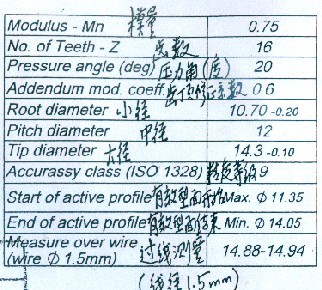 Modulus - Mn 模量 0.75
No. of Teeth - Z 齿数 16
Pressure angle (deg) 压力角(度) 20
Addendum mod. coeff. 齿顶修正系数 0.6
Root diameter 小径 10.70 -0.20
Pitch diameter 中径 12
Tip diameter 大径 14.3 -0.10
Accurassy class (ISO 1328) 精度等级 9
Start of active profile 有效型面开始 Max. Φ 11.35
End of active profile 有效型面结束 Min. Φ 14.05
Measure over wire 过线测量 14.88-14.94
(wire Φ 1.5mm)
(线径1.5mm)